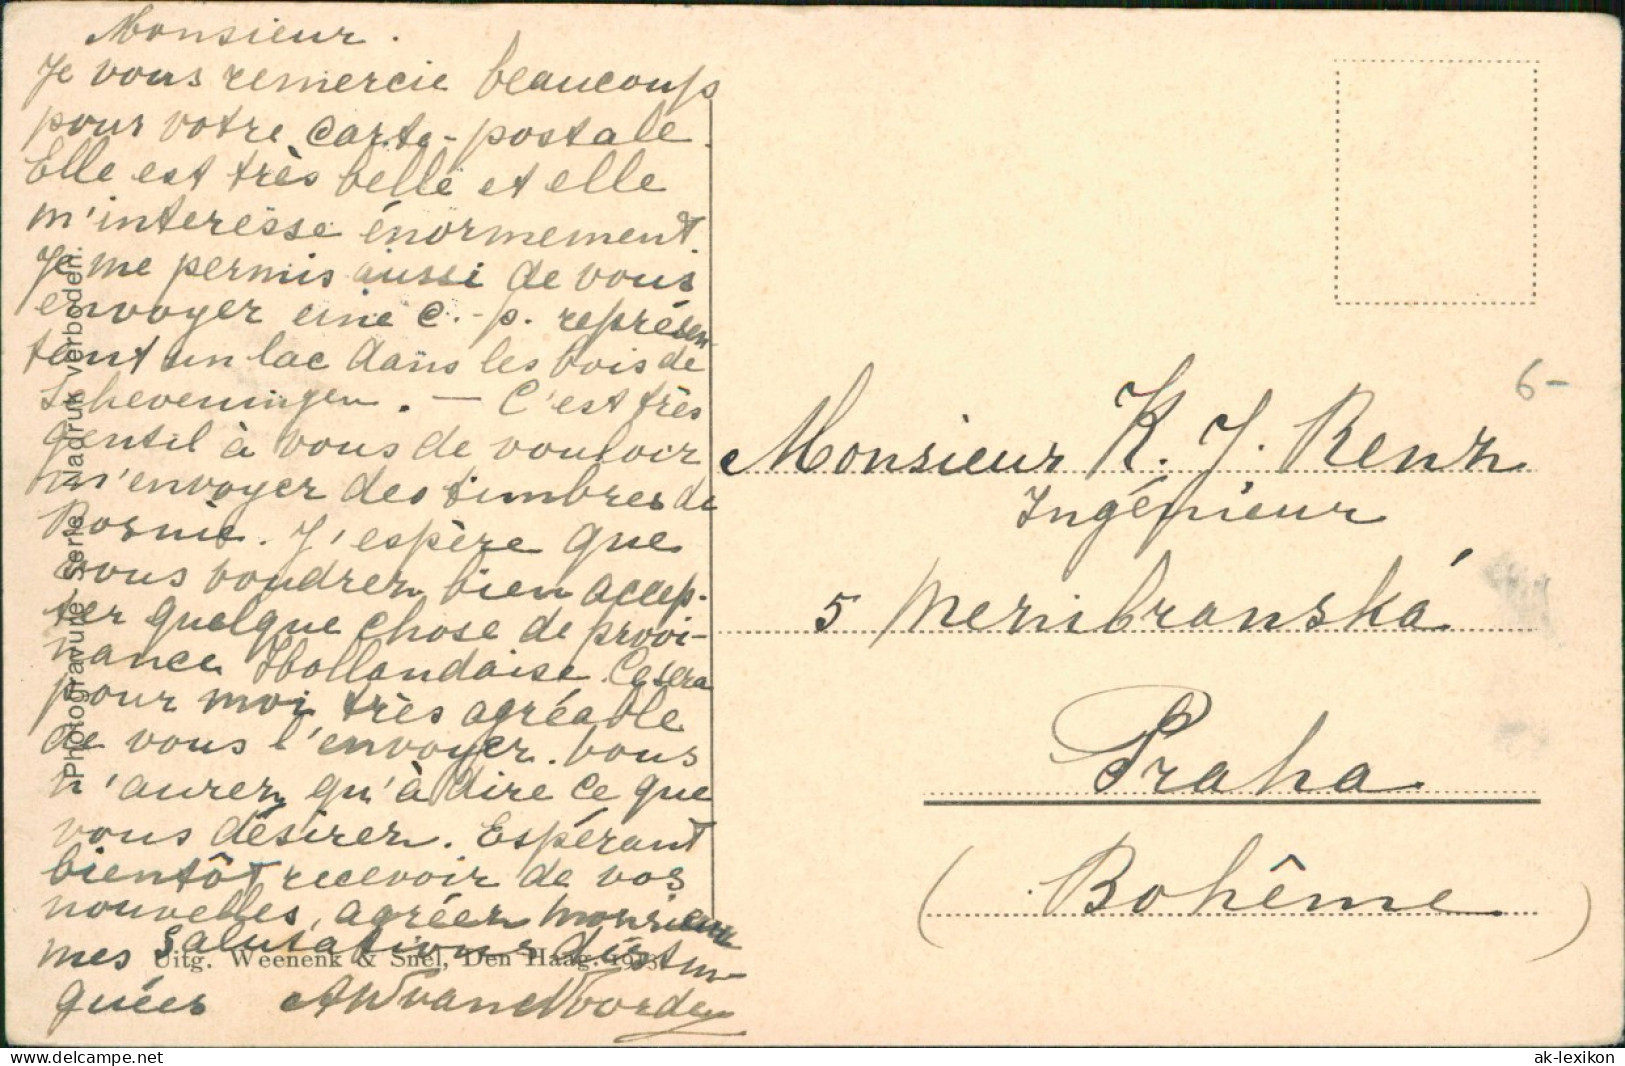 Monsieur.
Je vous remercie beaucoup
pour votre carte-postale.
Elle est très belle et elle
m'interesse énormement.
Je me permis aussi de vous
envoyer une c.-p. représen-
tant un lac dans les bois de
Scheveningen. — C'est très
gentil à vous de vouloir
m'envoyer des timbres de
Bosnie. J'espère que
vous voudrez bien accep-
ter quelque chose de provi-
nance Hollandaise. Ce sera
pour moi très agréable
de vous l'envoyer. Vous
n'aurez qu'à dire ce que
vous désirez. Espérant
bientôt recevoir de vos
nouvelles, agréez monsieur
mes salutations distin-
guées AW van Noorden
Photogravure Serie. Nadruk verboden.
Uitg. Weenenk & Snel, Den Haag.
6-
Monsieur K. J. Renz
Ingénieur
5 Membranská
Praha
(Bohême)
www.delcampe.net
ak-lexikon